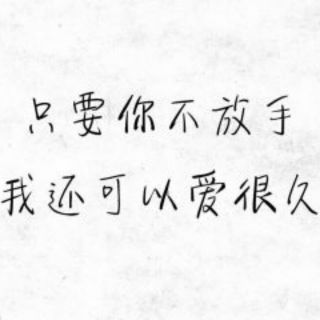 只要你不放手
我还可以爱很久